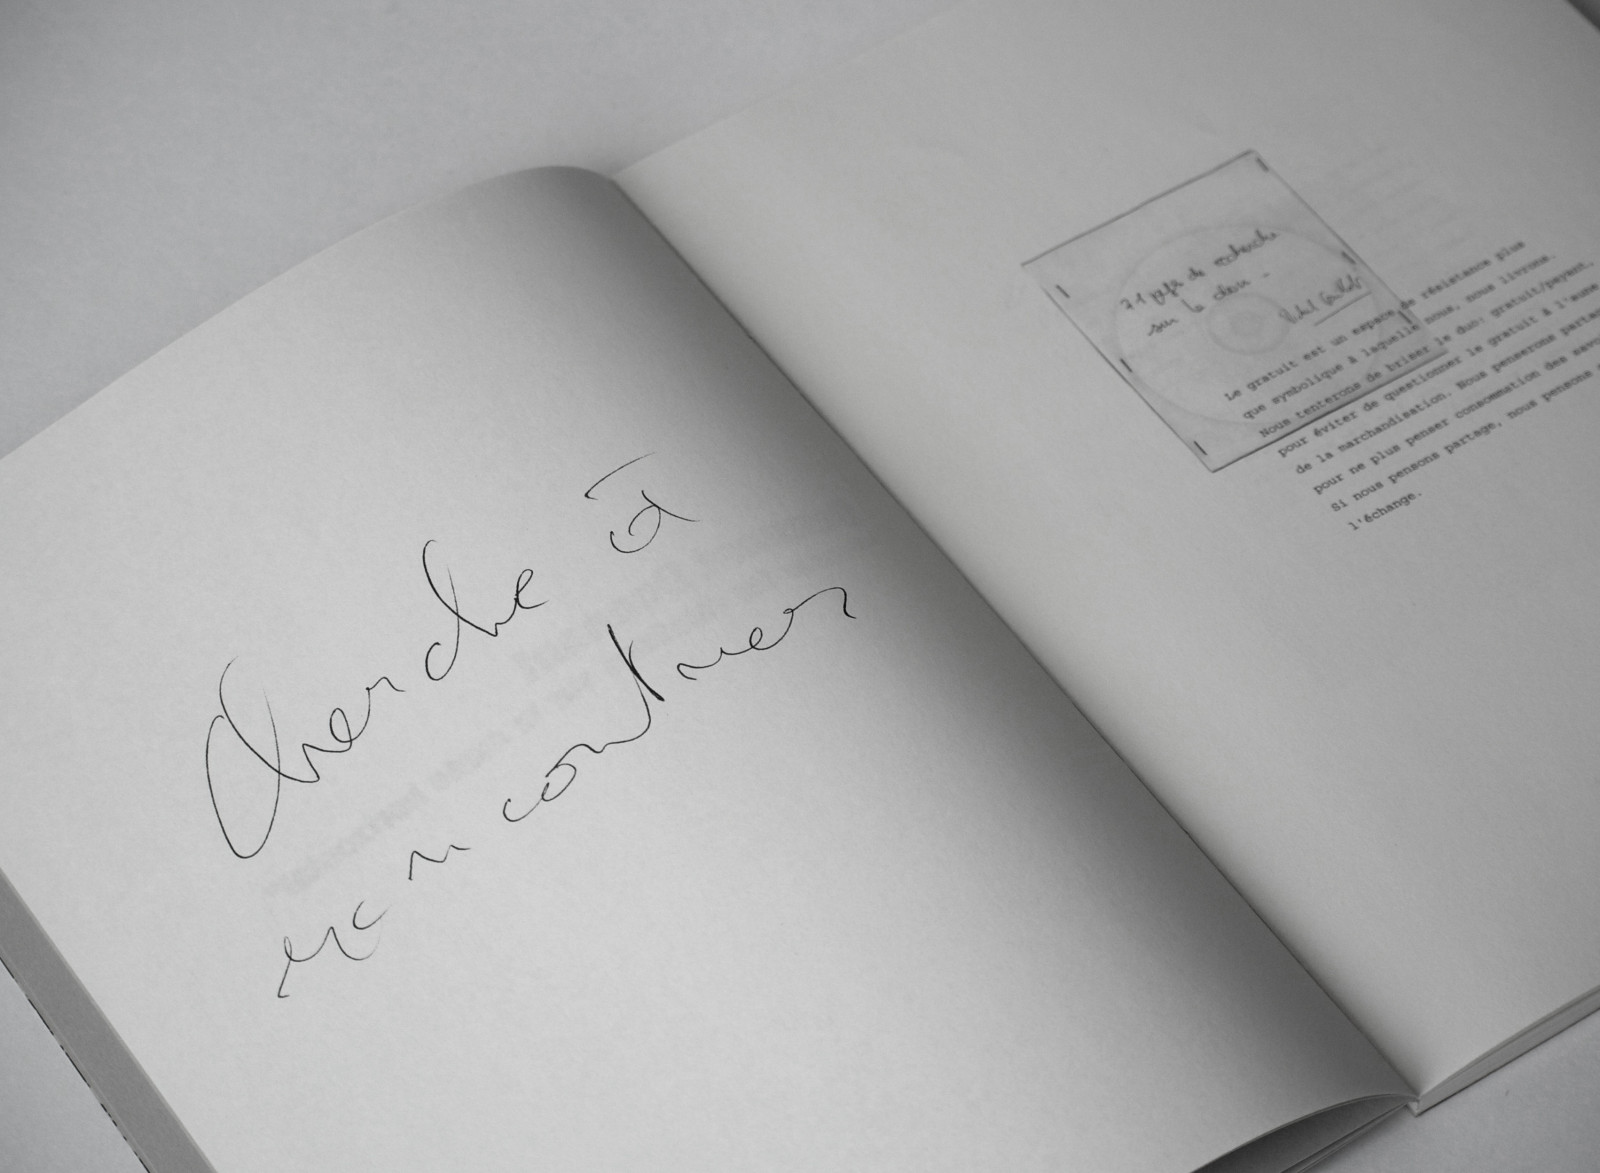 Cherche à
rencontrer
71 pages de recherche
sur le don -
Le gratuit est un espace de résistance plus
que symbolique à laquelle nous, nous livrons.
Nous tenterons de briser le duo: gratuit/payant,
pour éviter de questionner le gratuit à l'aune
de la marchandisation. Nous penserons partage
pour ne plus penser consommation des
Si nous pensons partage, nous pensons
l'échange.